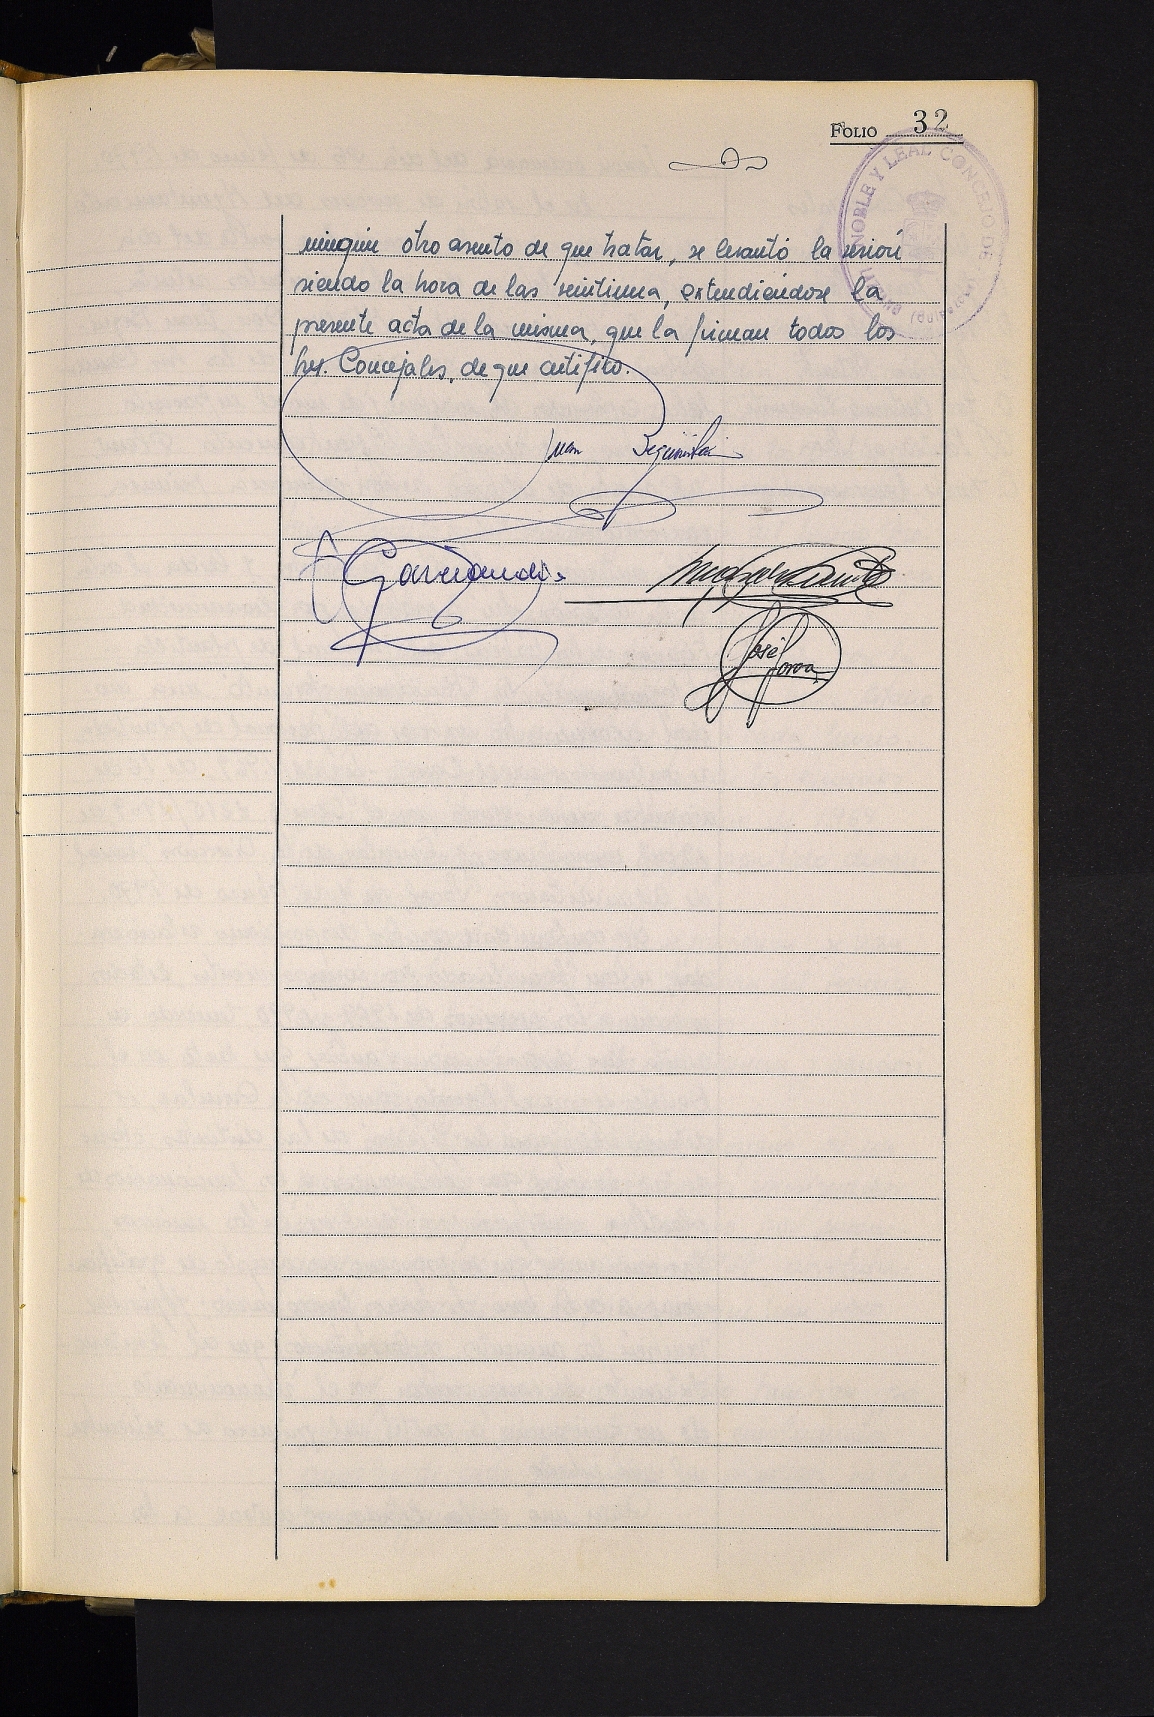 FOLIO 32
NOBLE Y LEAL CONCEJO DE
ningún otro asunto de que tratar, se levantó la sesión
siendo la hora de las veintiuna, extendiéndose la
presente acta de la misma, que la firman todos los
Sres. Concejales, de que certifico.
Juan
José